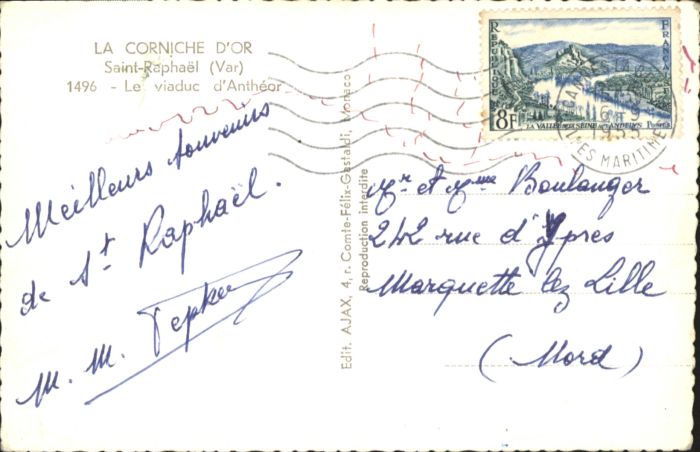 LA CORNICHE D'OR
Saint-Raphaël (Var)
1496 - Le viaduc d'Anthéor
Meilleurs souvenirs
de St Raphaël.
M. M.
Edit. AJAX, 4, r. Comte-Félix-Gastaldi, Monaco
Reproduction interdite
REPUBLIQUE
FRANÇAISE
8F
LA VALLÉE DE LA SEINE AUX ANDELYS
Postes
CANNES
16 - 9
1955
ALPES MARITIMES
Mr et Mme Boulanger
242 rue d'Ypres
Marquette lez Lille
(Nord)